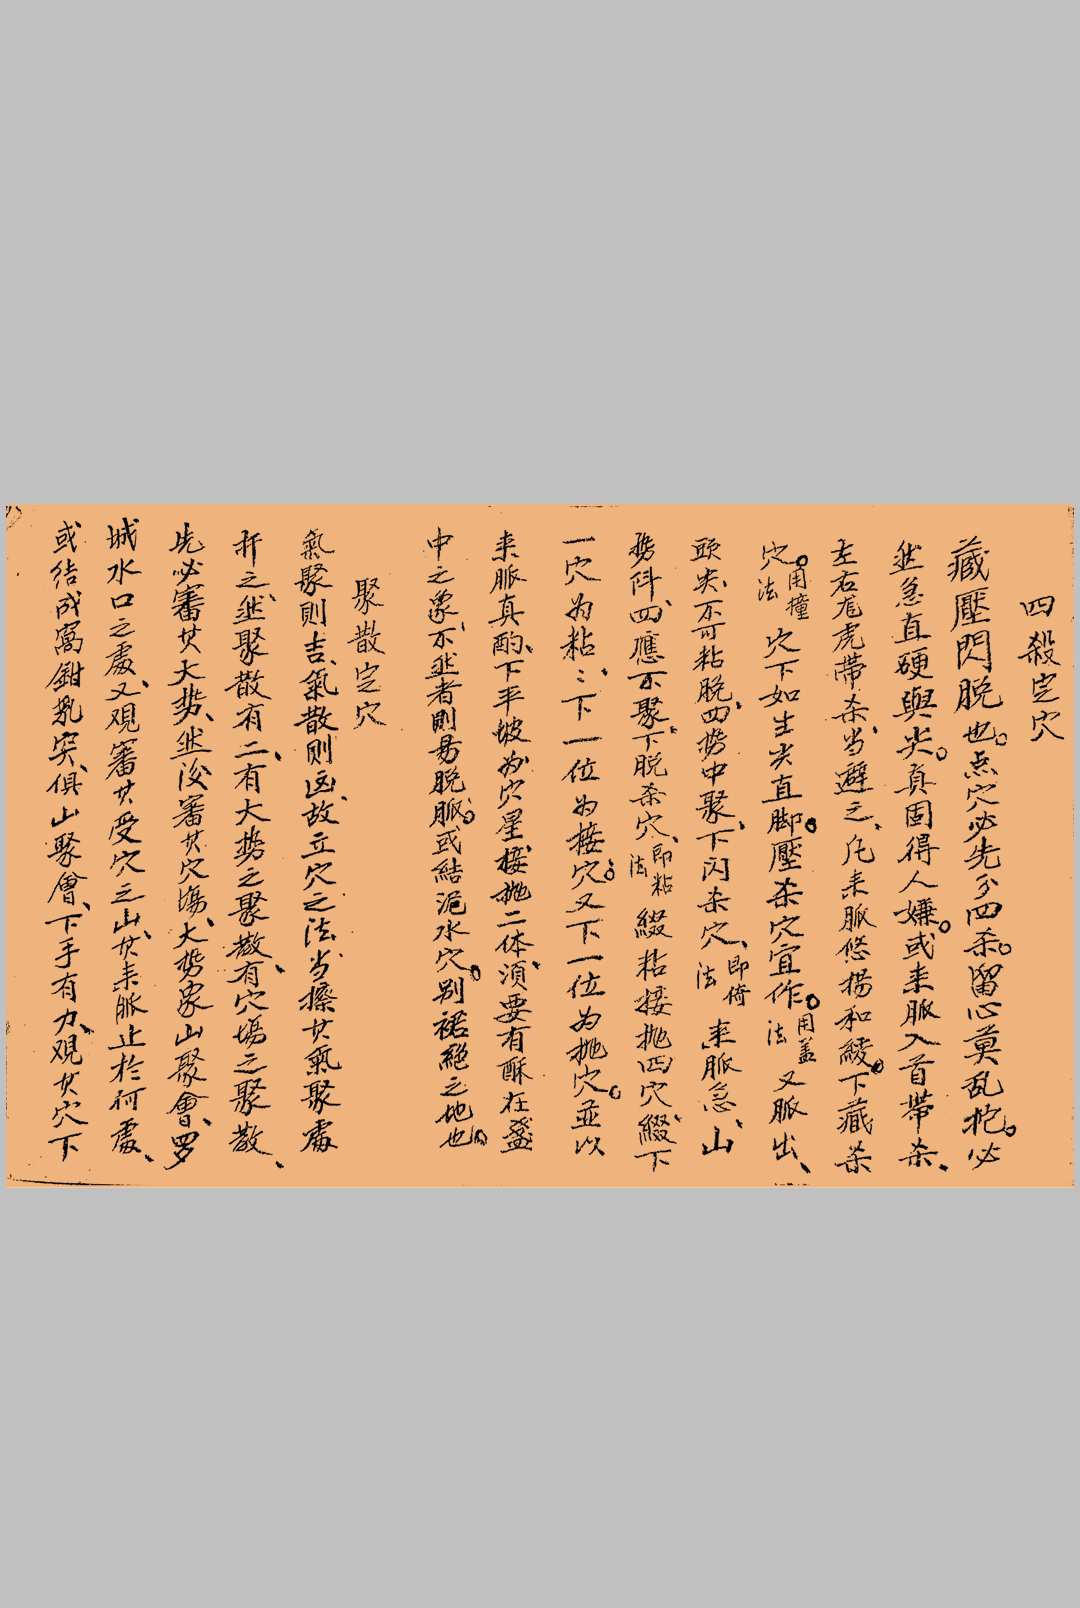 四殺定穴
藏壓閃脱也。点穴必先分四杀。留心莫乱挖。必
然急直硬與尖。真固得人嫌。或来脈入首带杀、
左右龙虎带杀、当避之、凡来脈悠揚和綾。下藏杀
穴。用撞穴法 穴下如生尖直脚。壓杀穴宜作。用盖法 又脈出、
頭尖、不可粘脱、四势中聚、下闪杀穴、即倚法 来脈急、山
势斜、四應不聚、下脱杀穴、即粘法 綴粘接抛四穴、綴下
一穴为粘、：下一位为接穴。又下一位为抛穴。並以
来脈真酌、下平坡为穴星、接抛二体、須要有酥在盤
中之象、不然者則易脱脈。或結泥水穴。别裙絕之地也。
聚散定穴
氣聚則吉、氣散則凶、故立穴之法、当擦其氣聚處
扦之、然聚散有二、有大势之聚散、有穴塲之聚散、
先必審其大势、然後審其穴塲、大势衆山聚會、罗
城水口之處、又观審其受穴之山、其来脈止於何處、
或结成窩鉗乳突、俱山聚會、下手有力、观其穴下